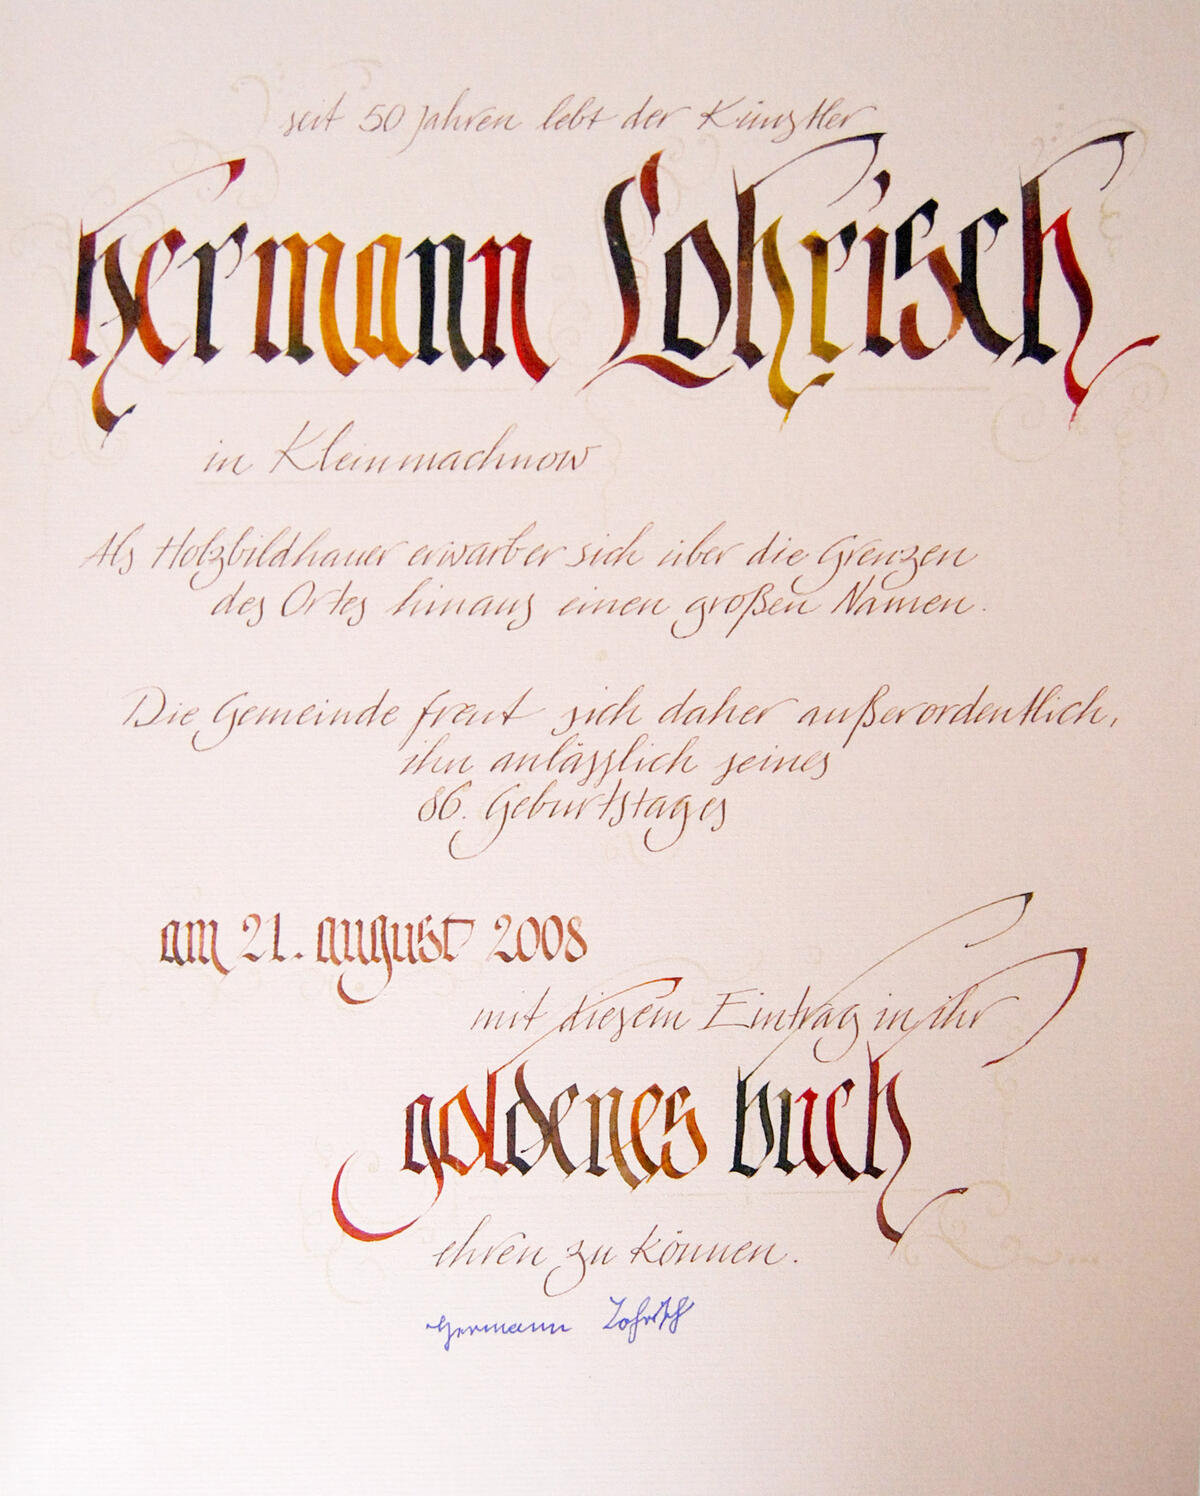 seit 50 Jahren lebt der Künstler
hermann Lohrisch
in Kleinmachnow
Als Holzbildhauer erwarb er sich über die Grenzen
des Ortes hinaus einen großen Namen.
Die Gemeinde freut sich daher außerordentlich,
ihn anlässlich seines
86. Geburtstages
am 21. august 2008
mit diesem Eintrag in ihr
goldenes buch
ehren zu können.
Hermann Lohrisch